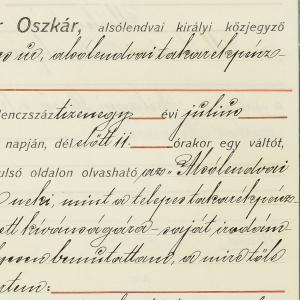 r Oszkár, alsólendvai királyi közjegyző
úr, alsólendvai takarékpénz-
lenczszáz tizenegy évi július
napján, dél előtt 11. órakor egy váltót,
ulsó oldalon olvasható az "Alsólendvai
neki, mint a telepes takarékpénz-
ett kívánságára saját irodám
bemutattam, a mire tőle
tem: